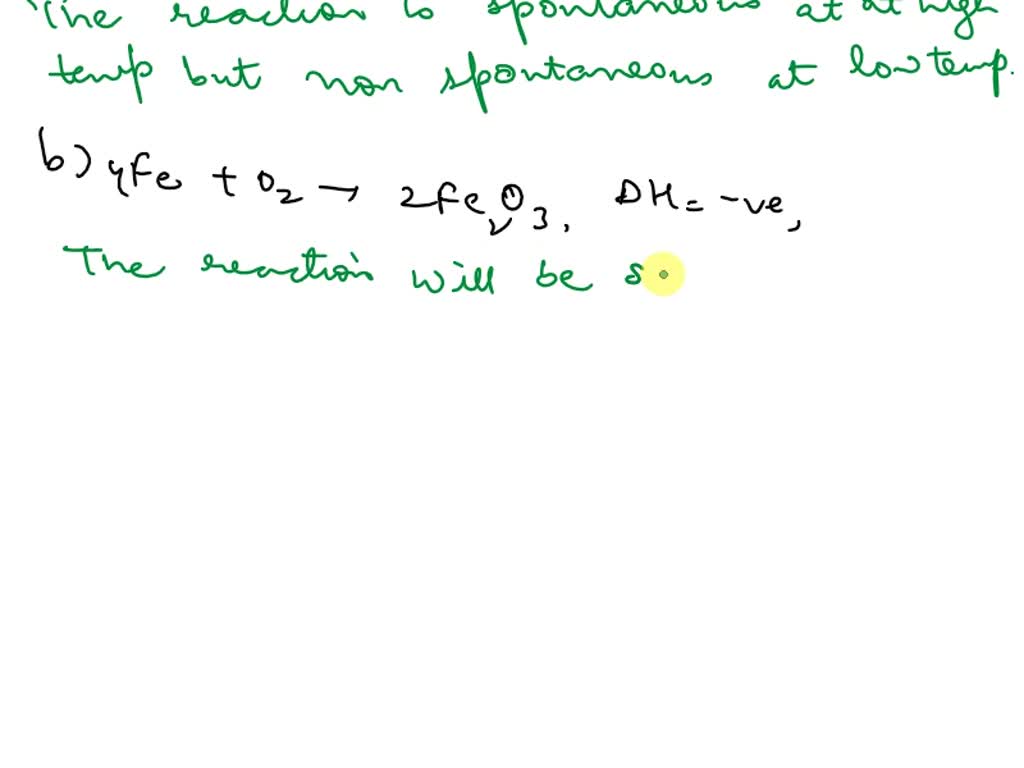 The reaction is spontaneous at at high
temp but non spontaneous at low temp.
b) 4Fe + O2 → 2Fe2O3, DH= -ve,
The reaction will be s